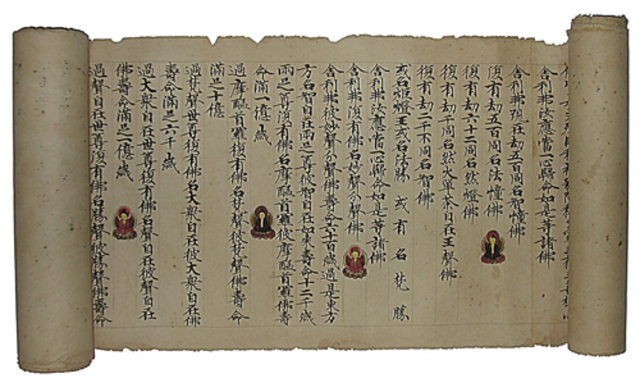 舍利弗汝應當一心歸命如是等諸佛
舍利弗現在劫五百同名智幢佛
復有劫五百同名法幢佛
復有劫六十二同名然燈佛
復有劫千同名然火單荼自在王聲佛
復有劫二千不同名智佛
或名然燈王或名法勝 或有名梵勝
舍利弗汝應當一心歸命如是等諸佛
舍利弗復有佛名妙聲分聲佛
舍利弗彼妙聲分聲佛壽命六十百歲過是東方
方名智自在兩足尊彼智自在如來壽命十二千歲
兩足尊復有佛名摩醯首羅彼摩醯首羅佛壽
命滿一億歲
過摩醯首羅復有佛名梵聲彼梵聲佛壽命
滿足十億
過梵聲世尊復有佛名大衆自在彼大衆自在佛
壽命滿足六千歲
過大衆自在世尊復有佛名聲自在彼聲自在
佛壽命滿足一億歲
過聲自在世尊復有佛名勝聲彼勝聲佛壽命